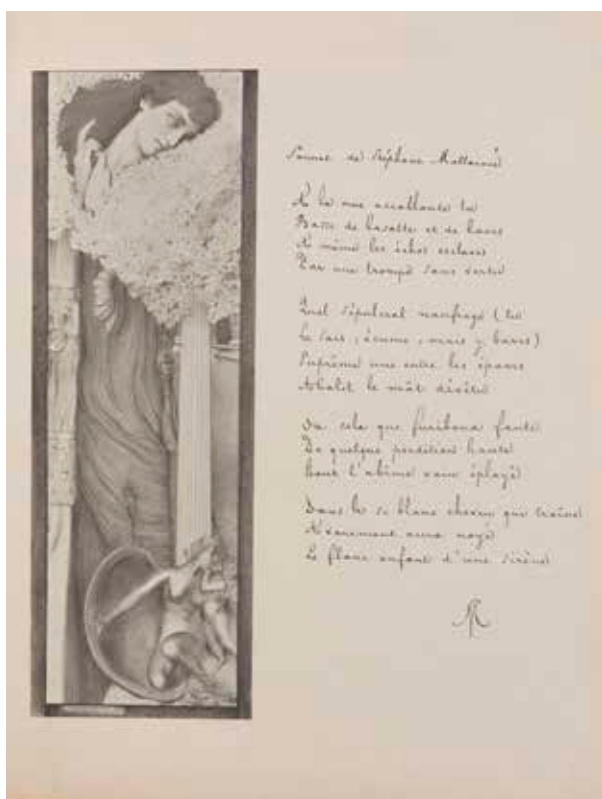 Sonnet de Stéphane Mallarmé
A la nue accablante tu
Basse de basalte et de laves
A même les échos esclaves
Par une trompe sans vertu
Quel sépulcral naufrage (tu
Le sais, écume, mais y baves)
Suprême une entre les épaves
Abolit le mât dévêtu
Ou cela que furibond faute
De quelque perdition haute
Tout l'abîme vain éployé
Dans le si blanc cheveu qui traîne
Avarement aura noyé
Le flanc enfant d'une sirène